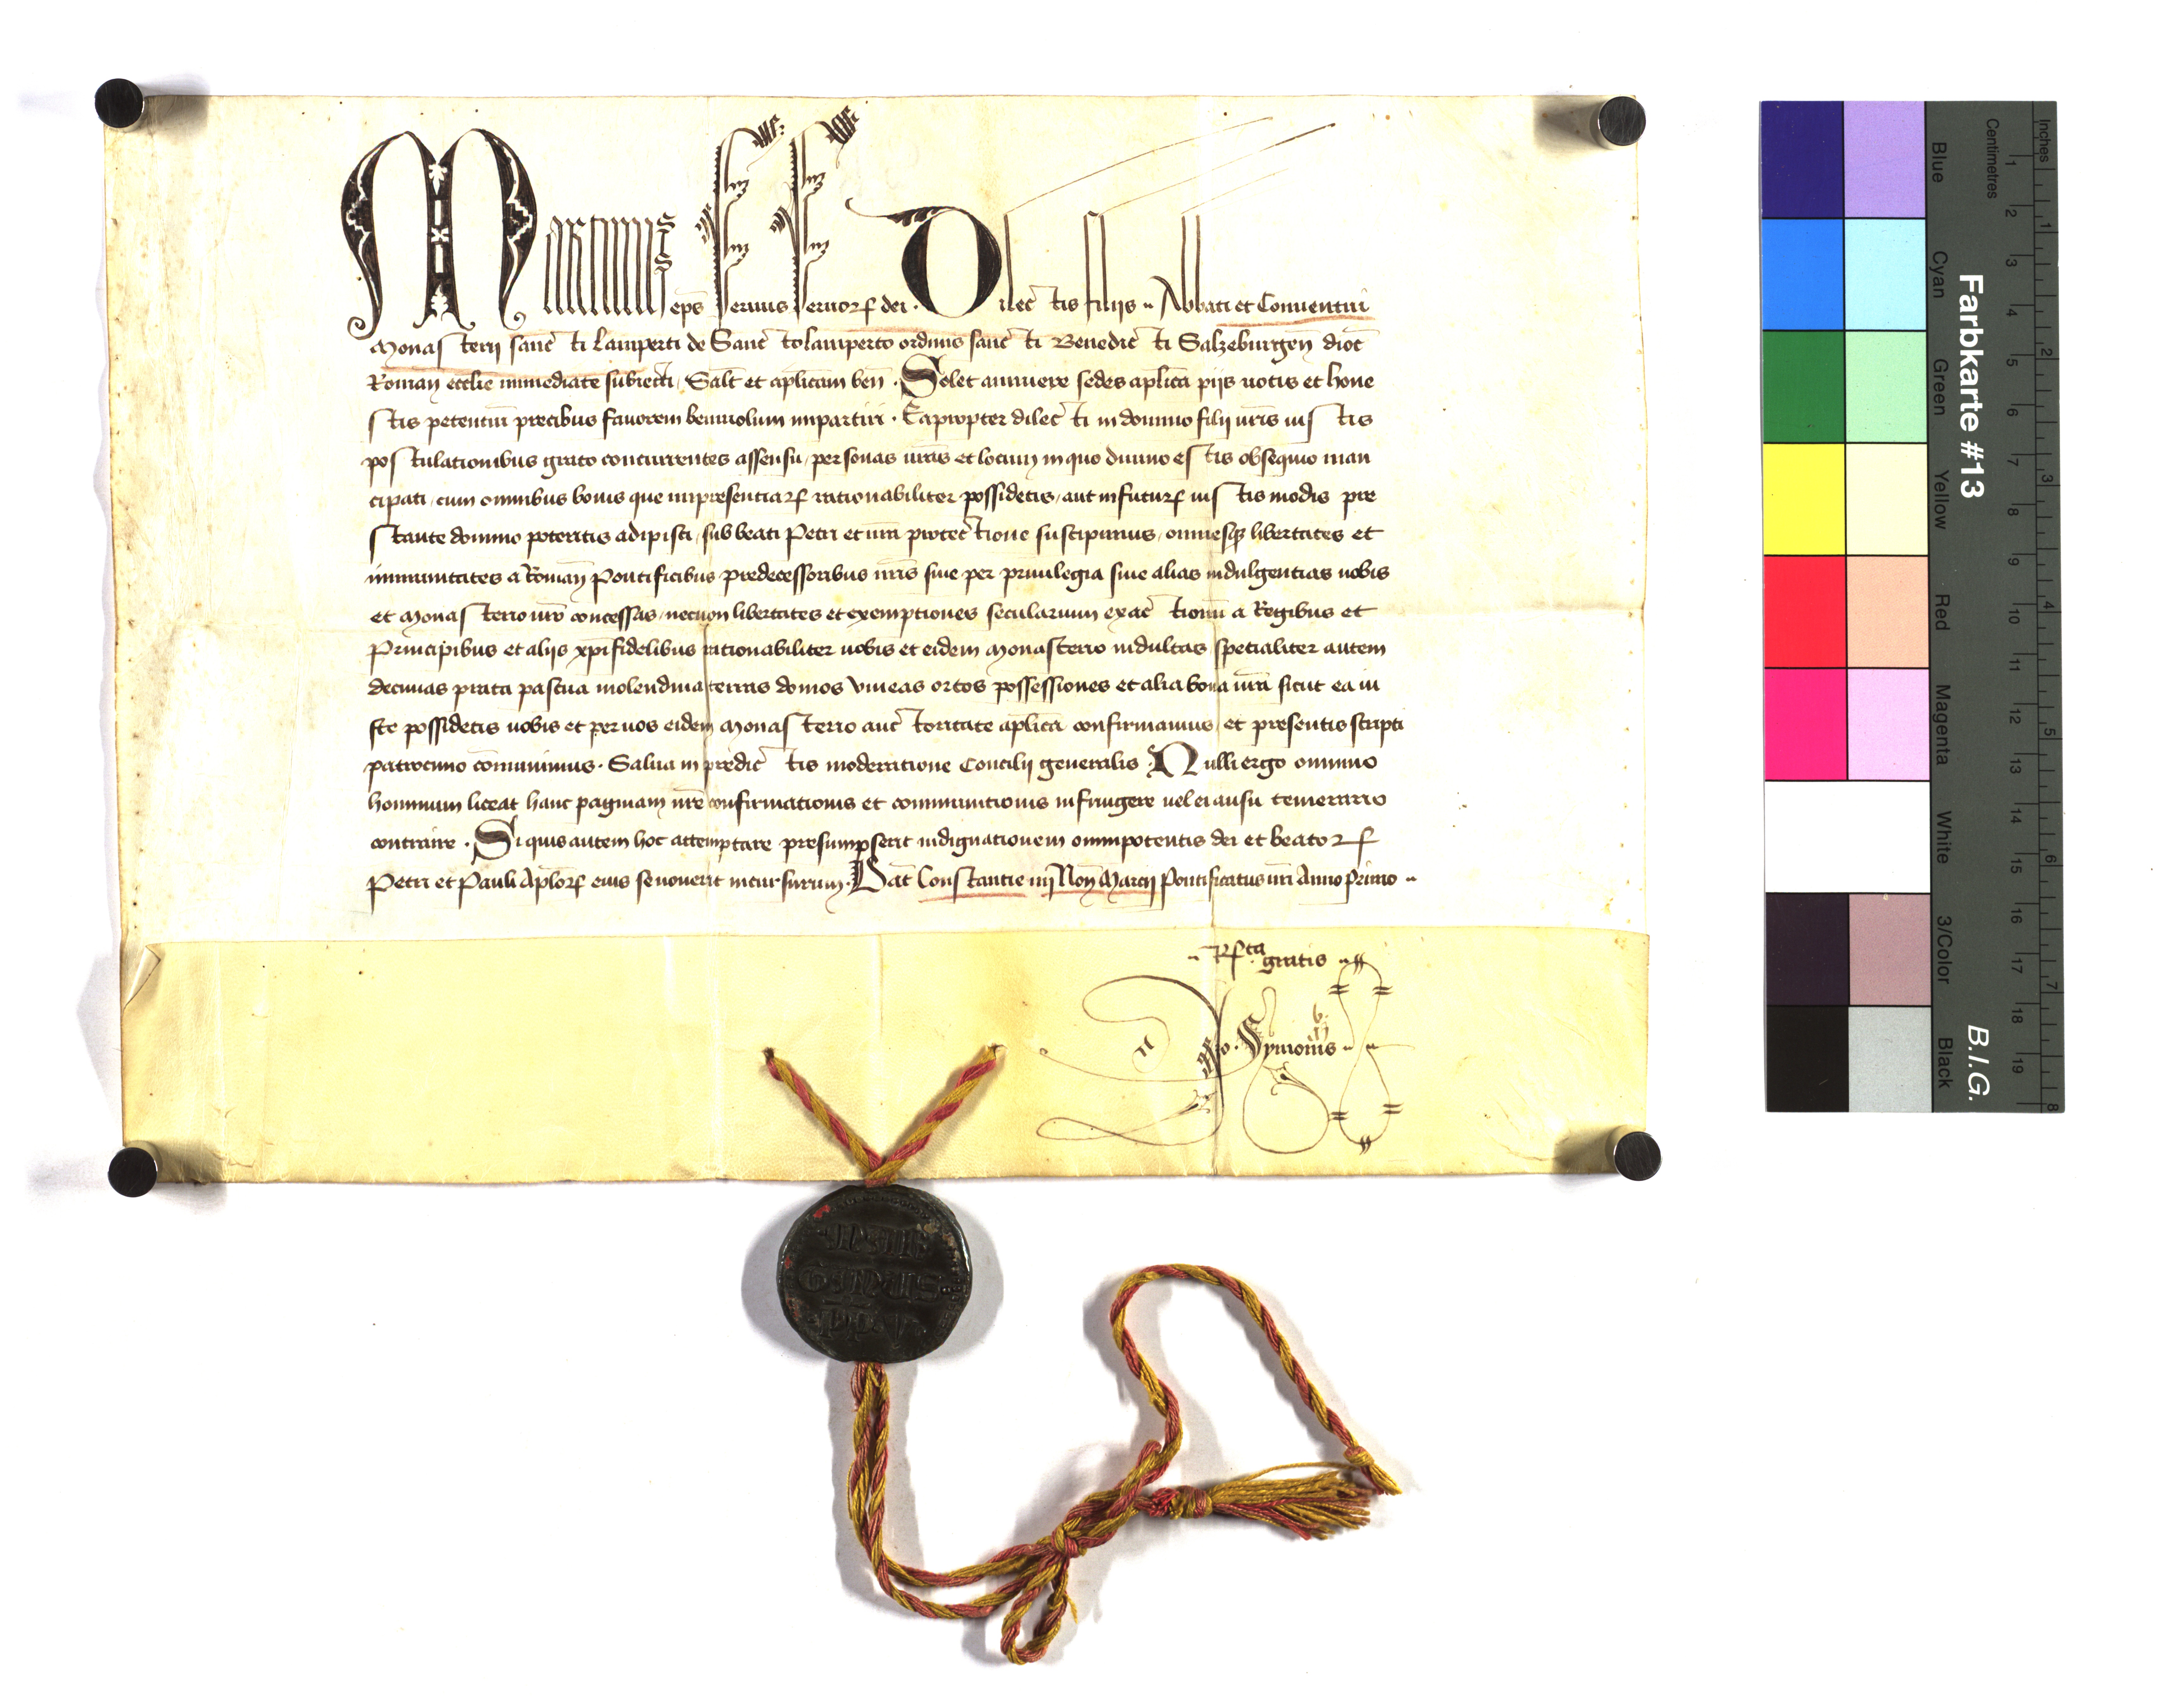 Martinus eps seruus seruorꝝ dei. Dilectis filijs ·· Abbati et Conuentui
Monasterij sancti Lamperti de Sancto lamperto ordinis sancti Benedicti Salzeburgeñ dioc̄
Romañ ecclie immediate subiecti, Salt̄ et aplicam ben̄. Solet annuere sedes aplica pijs uotis et hone
stis petentiū precibus fauorem beniuolum impartiri. Eapropter dilecti in domino filij ur̄is iustis
postulationibus grato concurrentes assensu, personas ur̄as et locum in quo diuino estis obsequio man
cipati, cum omnibus bonis que impresentiarꝝ rationabiliter possidetis, aut in futurꝝ iustis modis pre
stante domino poteritis adipisci, sub beati Petri et nr̄a protectione suscipimus, omnesqꝫ libertates et
immunitates a Romañ Pontificibus predecessoribus nr̄is siue per priuilegia siue alias indulgentias uobis
et Monasterio ur̄o concessas, necnon libertates et exemptiones secularium exactionū a Regibus et
Principibus et alijs xpifidelibus rationabiliter uobis et eidem Monasterio indultas specialiter autem
decimas prata pascua molendina terras domos vineas ortos possessiones et alia bona ur̄a sicut ea iu
ste possidetis uobis et per uos eidem Monasterio auctoritate aplica confirmamus, et presentis scripti
patrocinio cōmunimus. Salua in predictis moderatione Concilij generalis. Nulli ergo omnino
hominum liceat hanc paginam nr̄e confirmationis et communitionis infringere uel ei ausu temerario
contraire. Si quis autem hoc attemptare presumpserit indignationem omnipotentis dei et beatorꝝ
Petri et Pauli Aplorꝝ eius se nouerit incursurum. Dat̄ Constantie iiij Noñ Marcij Pontificatus nr̄i Anno Primo ··
·· Rta gratis ··
Jo. Symonis ··
MAR
TINUS
PP V
Farbkarte #13
B.I.G.
Centimetres
Inches
1 2 3 4 5 6 7 8 9 10 11 12 13 14 15 16 17 18 19
1 2 3 4 5 6 7 8
Blue
Cyan
Green
Yellow
Red
Magenta
White
3/Color
Black